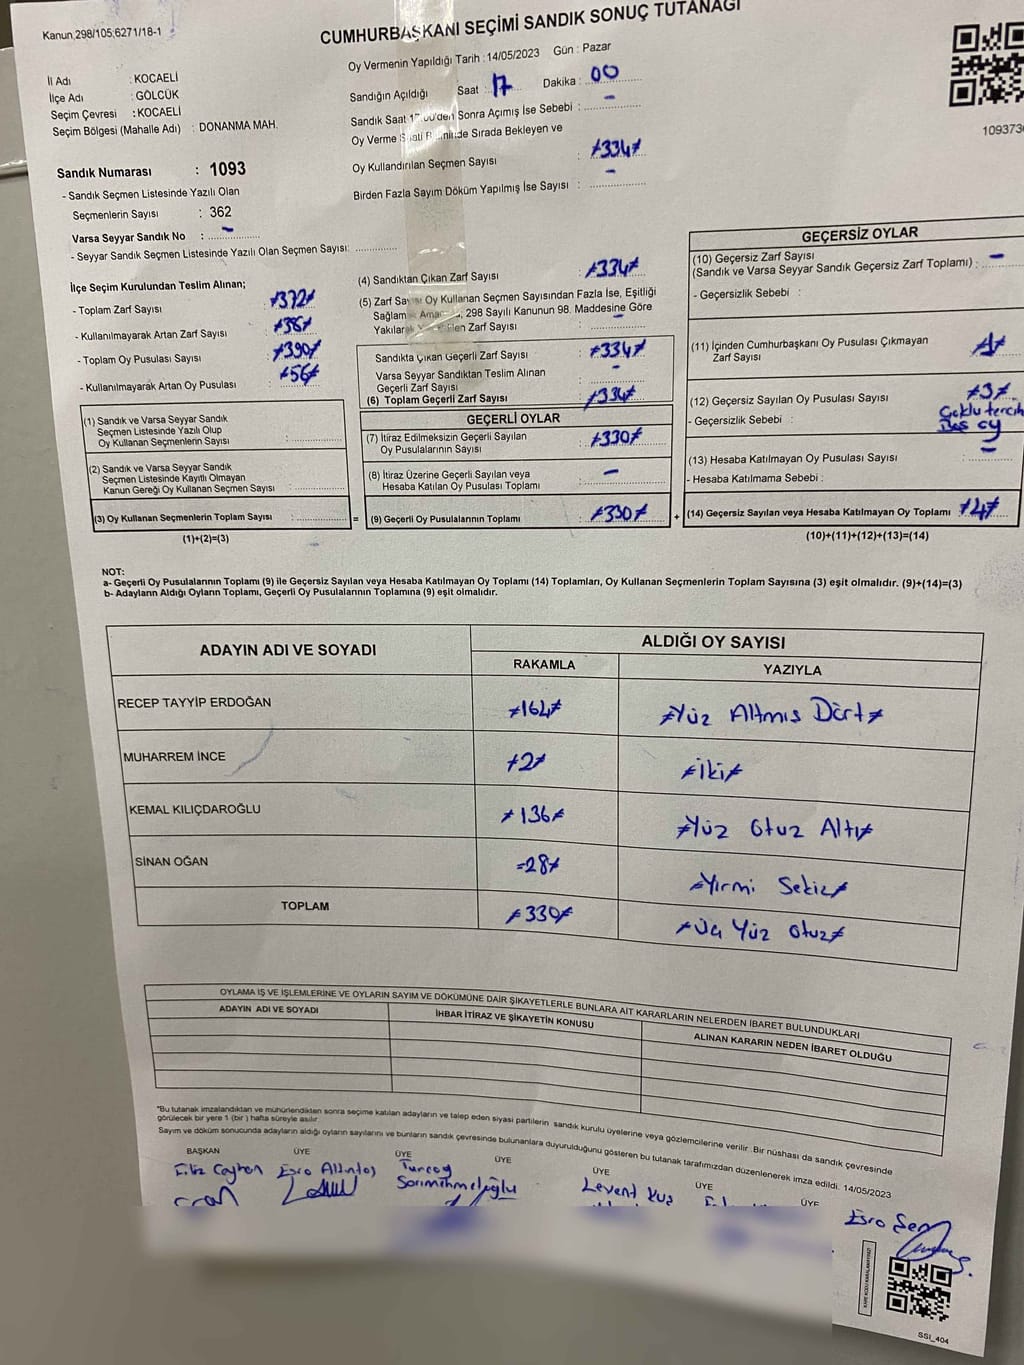 Kanun 298/105;6271/18-1
CUMHURBAŞKANI SEÇİMİ SANDIK SONUÇ TUTANAĞI
İl Adı : KOCAELİ
İlçe Adı : GÖLCÜK
Seçim Çevresi : KOCAELİ
Seçim Bölgesi (Mahalle Adı) : DONANMA MAH.
Sandık Numarası : 1093
- Sandık Seçmen Listesinde Yazılı Olan
Seçmenlerin Sayısı : 362
Varsa Seyyar Sandık No : -
- Seyyar Sandık Seçmen Listesinde Yazılı Olan Seçmen Sayısı:
Oy Vermenin Yapıldığı Tarih : 14/05/2023 Gün : Pazar
Sandığın Açıldığı Saat : 17 Dakika : 00
Sandık Saat 17:00'den Sonra Açımış İse Sebebi : -
Oy Verme Saati Bitiminde Sırada Bekleyen ve
Oy Kullandırılan Seçmen Sayısı : ≠334≠
Birden Fazla Sayım Döküm Yapılmış İse Sayısı : -
109373
İlçe Seçim Kurulundan Teslim Alınan;
- Toplam Zarf Sayısı : ≠372≠
- Kullanılmayarak Artan Zarf Sayısı : ≠38≠
- Toplam Oy Pusulası Sayısı : ≠390≠
- Kullanılmayarak Artan Oy Pusulası : ≠56≠
(1) Sandık ve Varsa Seyyar Sandık
Seçmen Listesinde Yazılı Olup
Oy Kullanan Seçmenlerin Sayısı :
(2) Sandık ve Varsa Seyyar Sandık
Seçmen Listesinde Kayıtlı Olmayan
Kanun Gereği Oy Kullanan Seçmen Sayısı :
(3) Oy Kullanan Seçmenlerin Toplam Sayısı : =
(1)+(2)=(3)
(4) Sandıktan Çıkan Zarf Sayısı : ≠334≠
(5) Zarf Sayısı Oy Kullanan Seçmen Sayısından Fazla İse, Eşitliği
Sağlamak Amacıyla, 298 Sayılı Kanunun 98. Maddesine Göre
Yakılarak Yok Edilen Zarf Sayısı : -
Sandıkta Çıkan Geçerli Zarf Sayısı : ≠334≠
Varsa Seyyar Sandıktan Teslim Alınan
Geçerli Zarf Sayısı : -
(6) Toplam Geçerli Zarf Sayısı : ≠334≠
GEÇERLİ OYLAR
(7) İtiraz Edilmeksizin Geçerli Sayılan
Oy Pusulalarının Sayısı : ≠330≠
(8) İtiraz Üzerine Geçerli Sayılan veya
Hesaba Katılan Oy Pusulası Toplamı : -
(9) Geçerli Oy Pusulalarının Toplamı : ≠330≠ +
GEÇERSİZ OYLAR
(10) Geçersiz Zarf Sayısı
(Sandık ve Varsa Seyyar Sandık Geçersiz Zarf Toplamı) : -
- Geçersizlik Sebebi :
(11) İçinden Cumhurbaşkanı Oy Pusulası Çıkmayan
Zarf Sayısı : ≠1≠
(12) Geçersiz Sayılan Oy Pusulası Sayısı : ≠3≠
- Geçersizlik Sebebi : Çoklu tercih
Boş oy
(13) Hesaba Katılmayan Oy Pusulası Sayısı : -
- Hesaba Katılmama Sebebi :
(14) Geçersiz Sayılan veya Hesaba Katılmayan Oy Toplamı : ≠4≠
(10)+(11)+(12)+(13)=(14)
NOT:
a- Geçerli Oy Pusulalarının Toplamı (9) ile Geçersiz Sayılan veya Hesaba Katılmayan Oy Toplamı (14) Toplamları, Oy Kullanan Seçmenlerin Toplam Sayısına (3) eşit olmalıdır. (9)+(14)=(3)
b- Adayların Aldığı Oyların Toplamı, Geçerli Oy Pusulalarının Toplamına (9) eşit olmalıdır.
ADAYIN ADI VE SOYADI ALDIĞI OY SAYISI
RAKAMLA YAZIYLA
RECEP TAYYİP ERDOĞAN ≠164≠ ≠Yüz Altmıs Dört≠
MUHARREM İNCE ≠2≠ ≠İki≠
KEMAL KILIÇDAROĞLU ≠136≠ ≠Yüz Otuz Altı≠
SİNAN OĞAN =28≠ ≠Yirmi Sekiz≠
TOPLAM ≠330≠ ≠Üç Yüz Otuz≠
OYLAMA İŞ VE İŞLEMLERİNE VE OYLARIN SAYIM VE DÖKÜMÜNE DAİR ŞİKAYETLERLE BUNLARA AİT KARARLARIN NELERDEN İBARET BULUNDUKLARI
ADAYIN ADI VE SOYADI İHBAR İTİRAZ VE ŞİKAYETİN KONUSU ALINAN KARARIN NEDEN İBARET OLDUĞU
*Bu tutanak imzalandıktan ve mühürlendikten sonra seçime katılan adayların ve talep eden siyasi partilerin sandık kurulu üyelerine veya gözlemcilerine verilir. Bir nüshası da sandık çevresinde
görülecek bir yere 1 (bir ) hafta süreyle asılır.
Sayım ve döküm sonucunda adayların aldığı oyların sayılarını ve bunların sandık çevresinde bulunanlara duyurulduğunu gösteren bu tutanak tarafımızdan düzenlenerek imza edildi. 14/05/2023
BAŞKAN ÜYE ÜYE ÜYE ÜYE ÜYE ÜYE
Filiz Ceyhan Esra Altıntaş Tuncay
Sarımehmetoğlu Levent Kuş
Esra Şen
KARE KODU KARALAMAYINIZ!
SSI_404